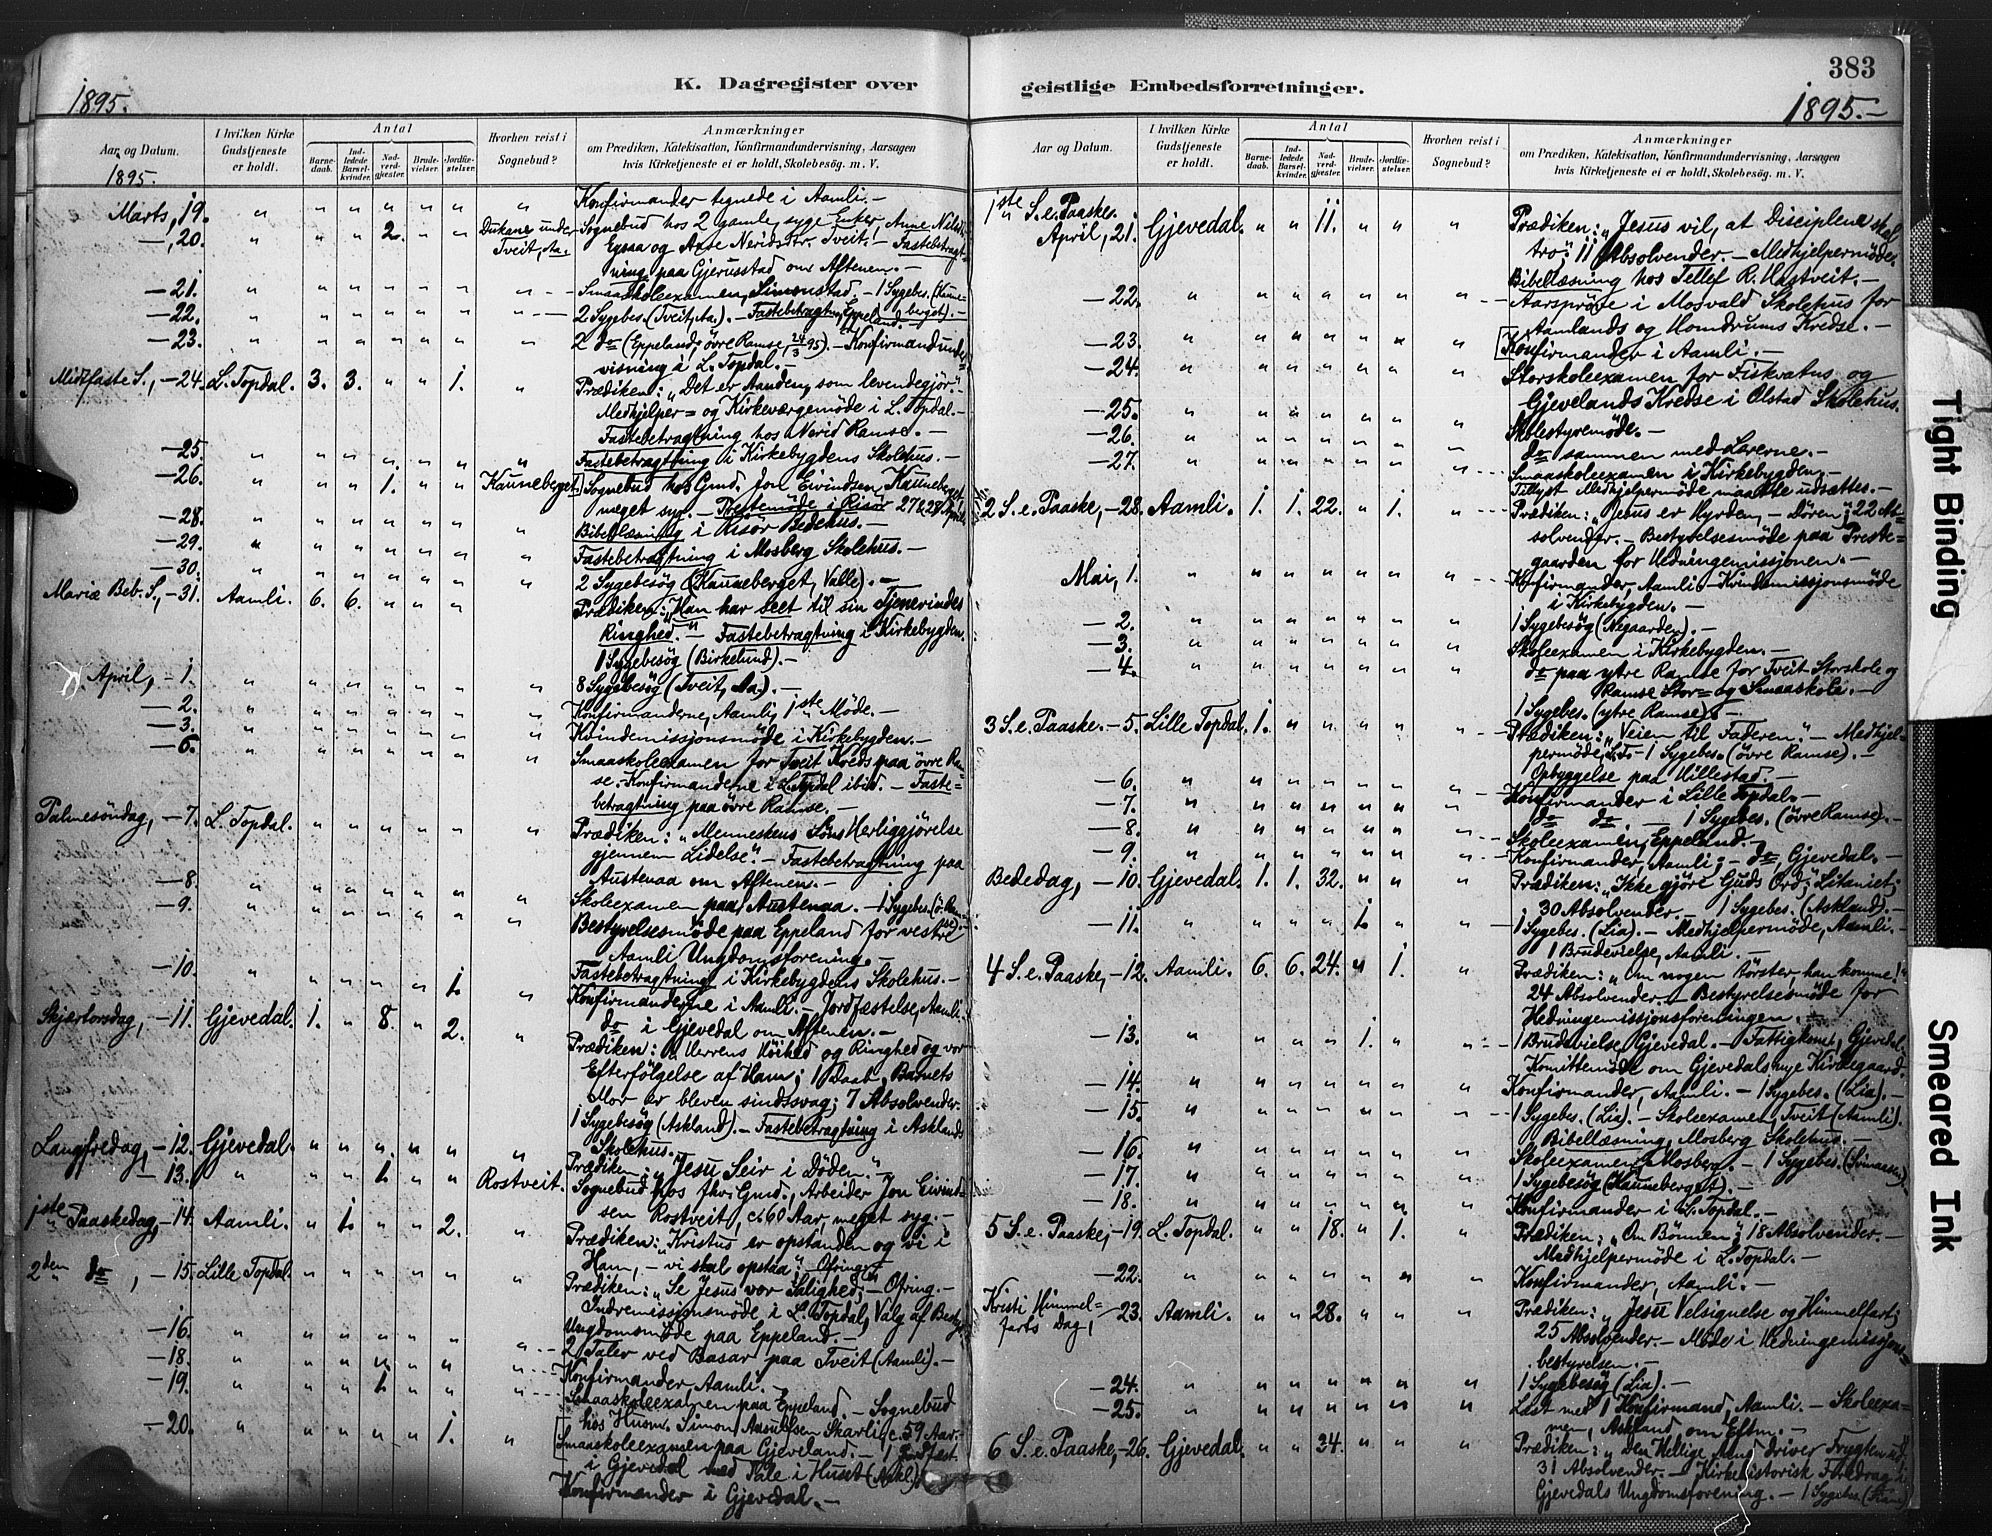 383
K. Dagregister over geistlige Embedsforretninger.
1895.
1895.—
Aar og Datum.
I hvilken Kirke Gudstjeneste er holdt.
Antal
Barnedaab.
Indledede Barselkvinder.
Nadverdgjester.
Brudevielser.
Jordfæstelser.
Hvorhen reist i Sognebud?
Anmærkninger
om Prædiken, Katekisation, Konfirmandundervisning, Aarsagen
hvis Kirketjeneste ei er holdt, Skolebesøg. m. V.
1895.
Marts, 19. " " " " " " " Konfirmander tegnede i Aamli.—
—, 20. " " " 2. " " Dukane under Tveit, Aa. Sognebud hos 2 gamle, syge Enker, Anne Nilsd.
og Aase Neridsdtr. Tveit.— Fastebetragt-
ning paa Gjerusstad om Aftenen.—
—21. " " " " " " " Smaaskoleexamen, Simonstad.— 1 Sygebes. (Kaune-
berget).—
—22. " " " " " " " 2 Sygebes. (Tveit, Aa.).— Fastebetragtn., Eppeland.
—23. " " " " " " " 2 do (Eppeland, övre Ramse, 24/3 95).— Konfirmandunder-
visning i L. Topdal.—
Midtfaste S., —24. L. Topdal. 3. 3. " " 1. " Prædiken: "Det er Aanden, som levendegjör."
Medhjelper= og Kirkeværgemöde i L. Topdal.—
Fastebetragtning hos Nerid Ramse.—
—25. " " " " " " " Fastebetragtning i Kirkebygdens Skolehus.—
—26. " " " 1. " " Kauneberget. Sognebud hos Gmd. Jon Eivindsen Kauneberget,
meget syg.— Prestemöde i Risör 27 & 28
—28. " " " " " " " Bibellæsning i Risör Bedehus.—
—29. " " " " " " " Fastebetragtning i Mosberg Skolehus.—
—30. " " " " " " " 2 Sygebesög (Kauneberget, Valle).—
Mariæ Beb. S., —31. Aamli. 6. 6. " " " Prædiken: "Han har seet til sin Tjenerindes
Ringhed."— Fastebetragtning i Kirkebygden.
1 Sygebesög (Birkelund).—
April, —1. " " " " " " " 8 Sygebesög (Tveit, Aa.).—
—2. " " " " " " " Konfirmanderne, Aamli, 1ste Möde.—
—3. " " " " " " " Kvindemissjonsmöde i Kirkebygden.—
—5. " " " " " " " Smaaskoleexamen for Tveit Kreds paa övre Ram-
se.— Konfirmanderne i L. Topdal ibid.— Faste=
betragtning paa övre Ramse.—
Palmesöndag, —7. L. Topdal. " " " " " " Prædiken: "Menneskens Söns Herliggjörelse
gjennem Lidelse."— Fastebetragtning paa
Austenaa om Aftenen.—
—8. " " " " " " " Skoleexamen paa Austenaa.— 1 Sygebes. (ö. Ram-
se).
—9. " " " " " " " Bestyrelsesmöde paa Eppeland for vestre
Aamli Ungdomsforening.—
Fastebetragtning i Kirkebygdens Skolehus.—
—10. " " " " " 1. " Konfirmanderne i Aamli.— Jordfæstelse, Aamli.
do i Gjevedal om Aftenen.—
Skjærtorsdag, —11. Gjevedal. 1. " 8. " 2. " Prædiken: Herrens Höihed og Ringhed og vor
Efterfölgelse af Ham; 1 Daab, Barnets
Mor er bleven sindssvag; 7 Absolvender.
1 Sygebesög (Askland).— Fastebetragtning i Asklands
Skolehus.—
Langfredag, —12. Gjevedal. " " " " " " Prædiken: "Jesu Seir i Döden."—
—13. " " " 1. " " Rostveit. Sognebud hos fhv. Gmd., Arbeider Jon Eivind-
sen Rostveit, c. 60 Aar, meget syg.—
1ste Paaskedag, —14. Aamli. " 1. " " 2. " Prædiken: "Kristus er opstanden og vi i
Ham,— vi skal opstaa."— Ofring.—
2den do, —15. Lille Topdal. " " " " " " Prædiken: "Se Jesus vor Salighed."— Ofring.—
Indremissionsmöde i L. Topdal, Valg af Besty.
—16. " " " " " " " Ungdomsmöde paa Eppeland.—
—18. " " " " " " " 2 Taler ved Basar paa Tveit (Aamli).—
Konfirmander, Aamli.—
—19. " " " 1. " " " Smaaskoleexamen paa Eppeland.— Sognebud
hos Husm. Simon Aasulfsen Skarli, c. 59 Aar.—
—20. " " " " " 1. " Smaaskoleexamen paa Gjeveland.— 1 Jordfæst.
i Gjevedal med Tale i Huset (Askl).
Konfirmander i Gjevedal.—
Aar og Datum.
I hvilken Kirke Gudstjeneste er holdt.
Antal
Barnedaab.
Indledede Barselkvinder.
Nadverdgjester.
Brudevielser.
Jordfæstelser.
Hvorhen reist i Sognebud?
Anmærkninger
om Prædiken, Katekisation, Konfirmandundervisning, Aarsagen
hvis Kirketjeneste ei er holdt, Skolebesøg. m. V.
1ste S. e. Paaske. April, 21. Gjevedal. " " 11. " " " Prædiken: "Jesus vil, at Disciplene skal
tro"; 11 Absolvender.— Medhjelpermöde.
Bibellæsning hos Tellef R. Hagtveit.—
—22. " " " " " " " Aarspröve i Mosvald Skolehus for
Aamlands og Momdrums Kredse.—
—23. " " " " " " " Konfirmander i Aamli.—
—24. " " " " " " " Storskoleexamen for Fiskvatns og
Gjevelands Kredse i Olstad Skolehus.
—25. " " " " " " " Skolestyremöde.—
—26. " " " " " " " do sammen med Lærerne.—
—27. " " " " " " " Smaaskoleexamen i Kirkebygden.—
Tillyst Medhjelpermöde maatte udsættes.—
2 S. e. Paaske, —28. Aamli. 1. 1. 22. " 1. " Prædiken: "Jesus er Hyrden,— Dören"; 22 Ab=
solvender.— Bestyrelsesmöde paa Preste=
gaarden for Hedningemissjonen.—
Mai, 1. " " " " " " " Konfirmander, Aamli.— Kvindemissjonsmöde
i Kirkebygden.—
—2. " " " " " " " 1 Sygebesög (Negaarden).—
—3. " " " " " " " Skoleexamen i Kirkebygden.—
—4. " " " " " " " do paa ytre Ramse for Tveit Storskole og
Ramse Stor= og Smaaskole.—
1 Sygebes. (ytre Ramse).—
3 S. e. Paaske. —5. Lille Topdal. 1. " " " " " Prædiken: "Veien til Faderen."— Medhjel-
permöde, L.T.— 1 Sygebes. (övre Ramse).—
Opbyggelse paa Hillestad.—
—6. " " " " " " " Konfirmander i Lille Topdal.—
—7. " " " " " " " do do.— 1 Sygebes. (övre Ramse).—
—8. " " " " " " " Skoleexamen, Eppeland.—
—9. " " " " " " " Konfirmander, Aamli;— do, Gjevedal.—
Bededag, —10. Gjevedal. 1. 1. 32. " " " Prædiken: "Ikke gjöre Guds Ord"; Litaniet;
30 Absolvender.— 1 Sygebes. (Askland).—
—11. " " " " 1. " " 1 Sygebes. (Lia).— Medhjelpermöde, Aamli.—
1 Brudevielse, Aamli.—
4 S. e. Paaske, —12. Aamli. 6. 6. 24. " 1. " Prædiken: "Om nogen törster, han komme!"
24 Absolvender.— Bestyrelsesmöde for
Hedningemissjonsforeningen.—
—13. " " " " 1. " " 1 Brudevielse, Gjevedal.— Fattigkomt., Gjevedal.
Komittemöde om Gjevedals nye Kirkegaard.
—14. " " " " " " " Konfirmander, Aamli.— 1 Sygebes. (Lia).—
—15. " " " " " " " 1 Sygebes. (Lia).— Skoleexamen, Tveit (Aamli).
Bibellæsning, Mosberg Skolehus.—
—16. " " " " " " " Skoleexamen, Mosberg.— 1 Sygebes.
—17. " " " " " " " 1 Sygebesög (Kauneberget).—
—18. " " " " " " " Konfirmander i L. Topdal.—
5 S. e. Paaske, —19. L. Topdal. " " 18. " 1. " Prædiken: "Om Bönnen"; 18 Absolvender.—
Medhjelpermöde i L. Topdal.—
—22. " " " " " " " Konfirmander, Aamli.—
Kristi Himmel= farts Dag, —23. Aamli. " " 28. " " " Prædiken: "Jesu Velsignelse og Himmelfart";
25 Absolvender.— Möde i Hedningemissjons=
bestyrelsen.—
—24. " " " " " " " 1 Sygebesög (Lia).—
—25. " " " " " " " Læst med 1 Konfirmand, Aamli.— Skoleexa=
men, Askland, om Eftm.—
6 S. e. Paaske, —26. Gjevedal. " " 34. " " " Prædiken: "Den Hellige Aand driver Frygten ud";
31 Absolvender.— Kirkehistorisk Foredrag i
Gjevedals Ungdomsforening.— 1 Sygebes.
Tight Binding
Smeared Ink